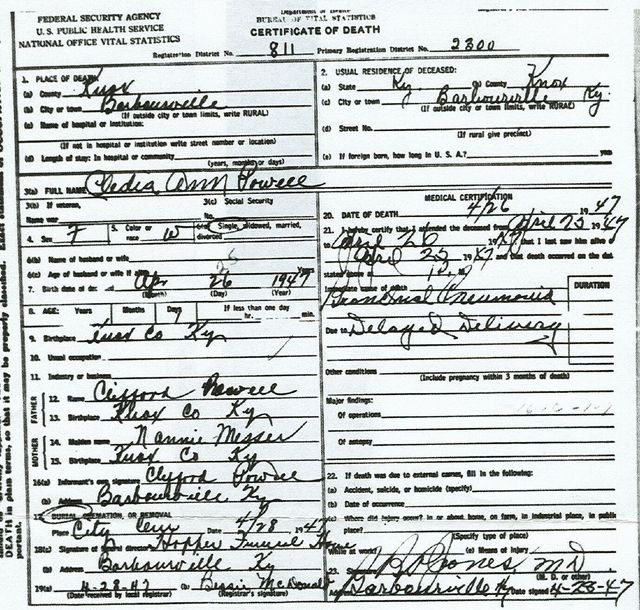 FEDERAL SECURITY AGENCY
U. S. PUBLIC HEALTH SERVICE
NATIONAL OFFICE VITAL STATISTICS
BUREAU OF VITAL STATISTICS
CERTIFICATE OF DEATH
Registration District No. 811 Primary Registration District No. 2300
1. PLACE OF DEATH
(a) County Knox
(b) City or town Barbourville
(If outside city or town limits, write RURAL)
(c) Name of hospital or institution:
(If not in hospital or institution write street number or location)
(d) Length of stay: In hospital or community
(years, months or days)
2. USUAL RESIDENCE OF DECEASED:
(a) State Ky. (b) County Knox
(c) City or town Barbourville Ky
(If outside city or town limits, write RURAL)
(d) Street No.
(If rural give precinct)
(e) If foreign born, how long in U. S. A.? years
3(a) FULL NAME Cledia Ann Powell
3(b) If veteran, Name war
3(c) Social Security No.
4. Sex F 5. Color or race W 6(a) Single, widowed, married, divorced
6(b) Name of husband or wife
6(c) Age of husband or wife if alive
7. Birth date of Apr 26 1947
(Month) (Day) (Year)
8. AGE: Years Months Days If less than one day
hr. min.
9. Birthplace Knox Co Ky
10. Usual occupation
11. Industry or business
FATHER
12. Name Clifford Powell
13. Birthplace Knox Co Ky
MOTHER
14. Maiden name Nannie Messer
15. Birthplace Knox Co Ky
16(a) Informant's own signature Clyfford Powell
(b) Address Barbourville Ky
17. BURIAL, CREMATION, OR REMOVAL
Place City Cem Date 4/28 1947
18(a) Signature of funeral director Hopper Funeral Home
(b) Address Barbourville Ky
19(a) 4-28-47 (b) Bessie McDonald
(Date received by local registrar) (Registrar's signature)
MEDICAL CERTIFICATION
20. DATE OF DEATH 4/26 1947
21. I hereby certify that I attended the deceased from April 25 1947
1947 that I last saw him alive
April 25 1947 and that death occurred on the date
stated above
Immediate cause of death DURATION
Bronchial Pneumonia
Due to Delayed Delivery
Other conditions
(Include pregnancy within 3 months of death)
Major findings:
Of operations
Of autopsy
22. If death was due to external causes, fill in the following:
(a) Accident, suicide, or homicide (specify)
(b) Date of occurrence
Where did injury occur? in or about home, on farm, in industrial place, in public
place?
(Specify type of place)
While at work? (e) Means of injury
23. Signature Jones MD
(M. D. or other)
Address Barbourville Ky Date signed 4-25-47
DEATH in plain terms, so that it may be properly classified.
portant.